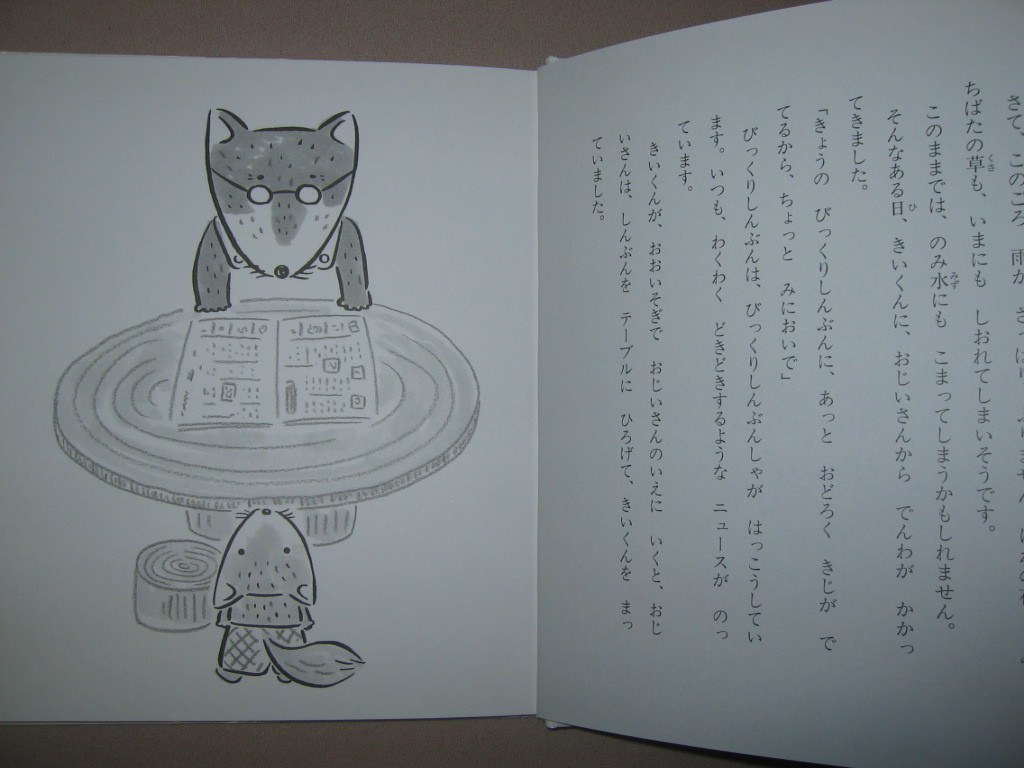 さて、このごろ 雨が さっぱり ふりません。
ちばたの草も、いまにも しおれてしまいそうです。
このままでは、のみ水にも こまってしまうかもしれません。
そんなある日、きいくんに、おじいさんから でんわが かかっ
てきました。
「きょうの びっくりしんぶんに、あっと おどろく きじが で
てるから、ちょっと みにおいで」
びっくりしんぶんは、びっくりしんぶんしゃが はっこうしてい
ます。いつも、わくわく どきどきするような ニュースが のっ
ています。
きいくんが、おおいそぎで おじいさんのいえに いくと、おじ
いさんは、しんぶんを テーブルに ひろげて、きいくんを まっ
ていました。